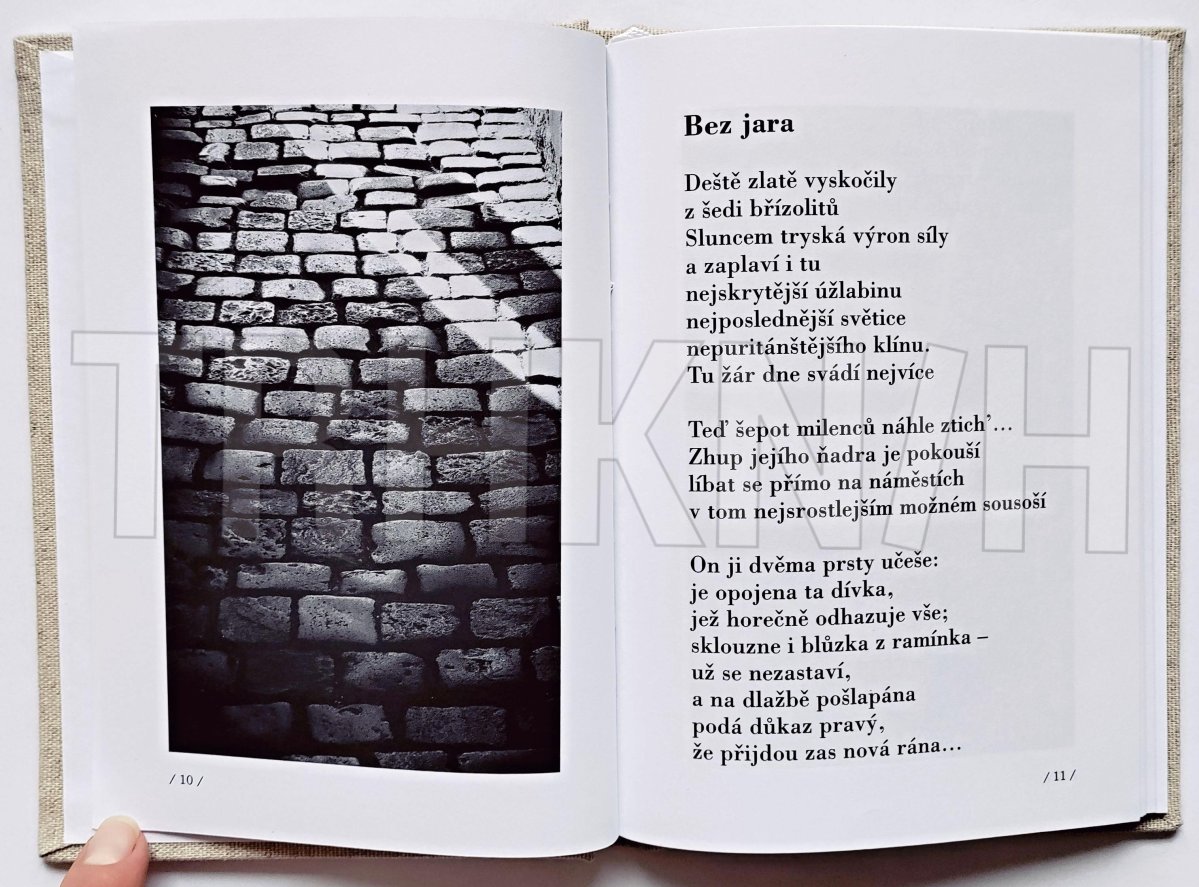 Bez jara
Deště zlatě vyskočily
z šedi břízolitů
Sluncem tryská výron síly
a zaplaví i tu
nejskrytější úžlabinu
nejposlednější světice
nepuritánštějšího klínu.
Tu žár dne svádí nejvíce
Teď šepot milenců náhle ztich’...
Zhup jejího ňadra je pokouší
líbat se přímo na náměstích
v tom nejsrostlejším možném sousoší
On ji dvěma prsty učeše:
je opojena ta dívka,
jež horečně odhazuje vše;
sklouzne i blůzka z ramínka –
už se nezastaví,
a na dlažbě pošlapána
podá důkaz pravý,
že přijdou zas nová rána...
/ 10 /
/ 11 /